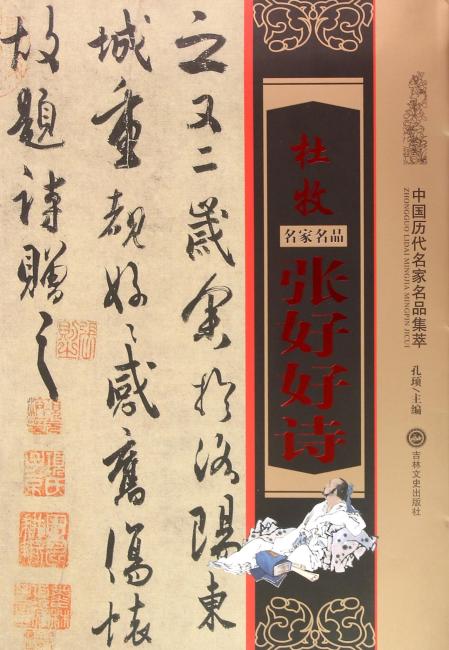 中国历代名家名品集萃
ZHONGGUO LIDAI MINGJIA MINGPIN JICUI
孔琐/主编
吉林文史出版社
杜牧
名家名品
张好好诗
之又二歲余於洛陽東
城重覩好〻感舊傷懷
故題詩贈之